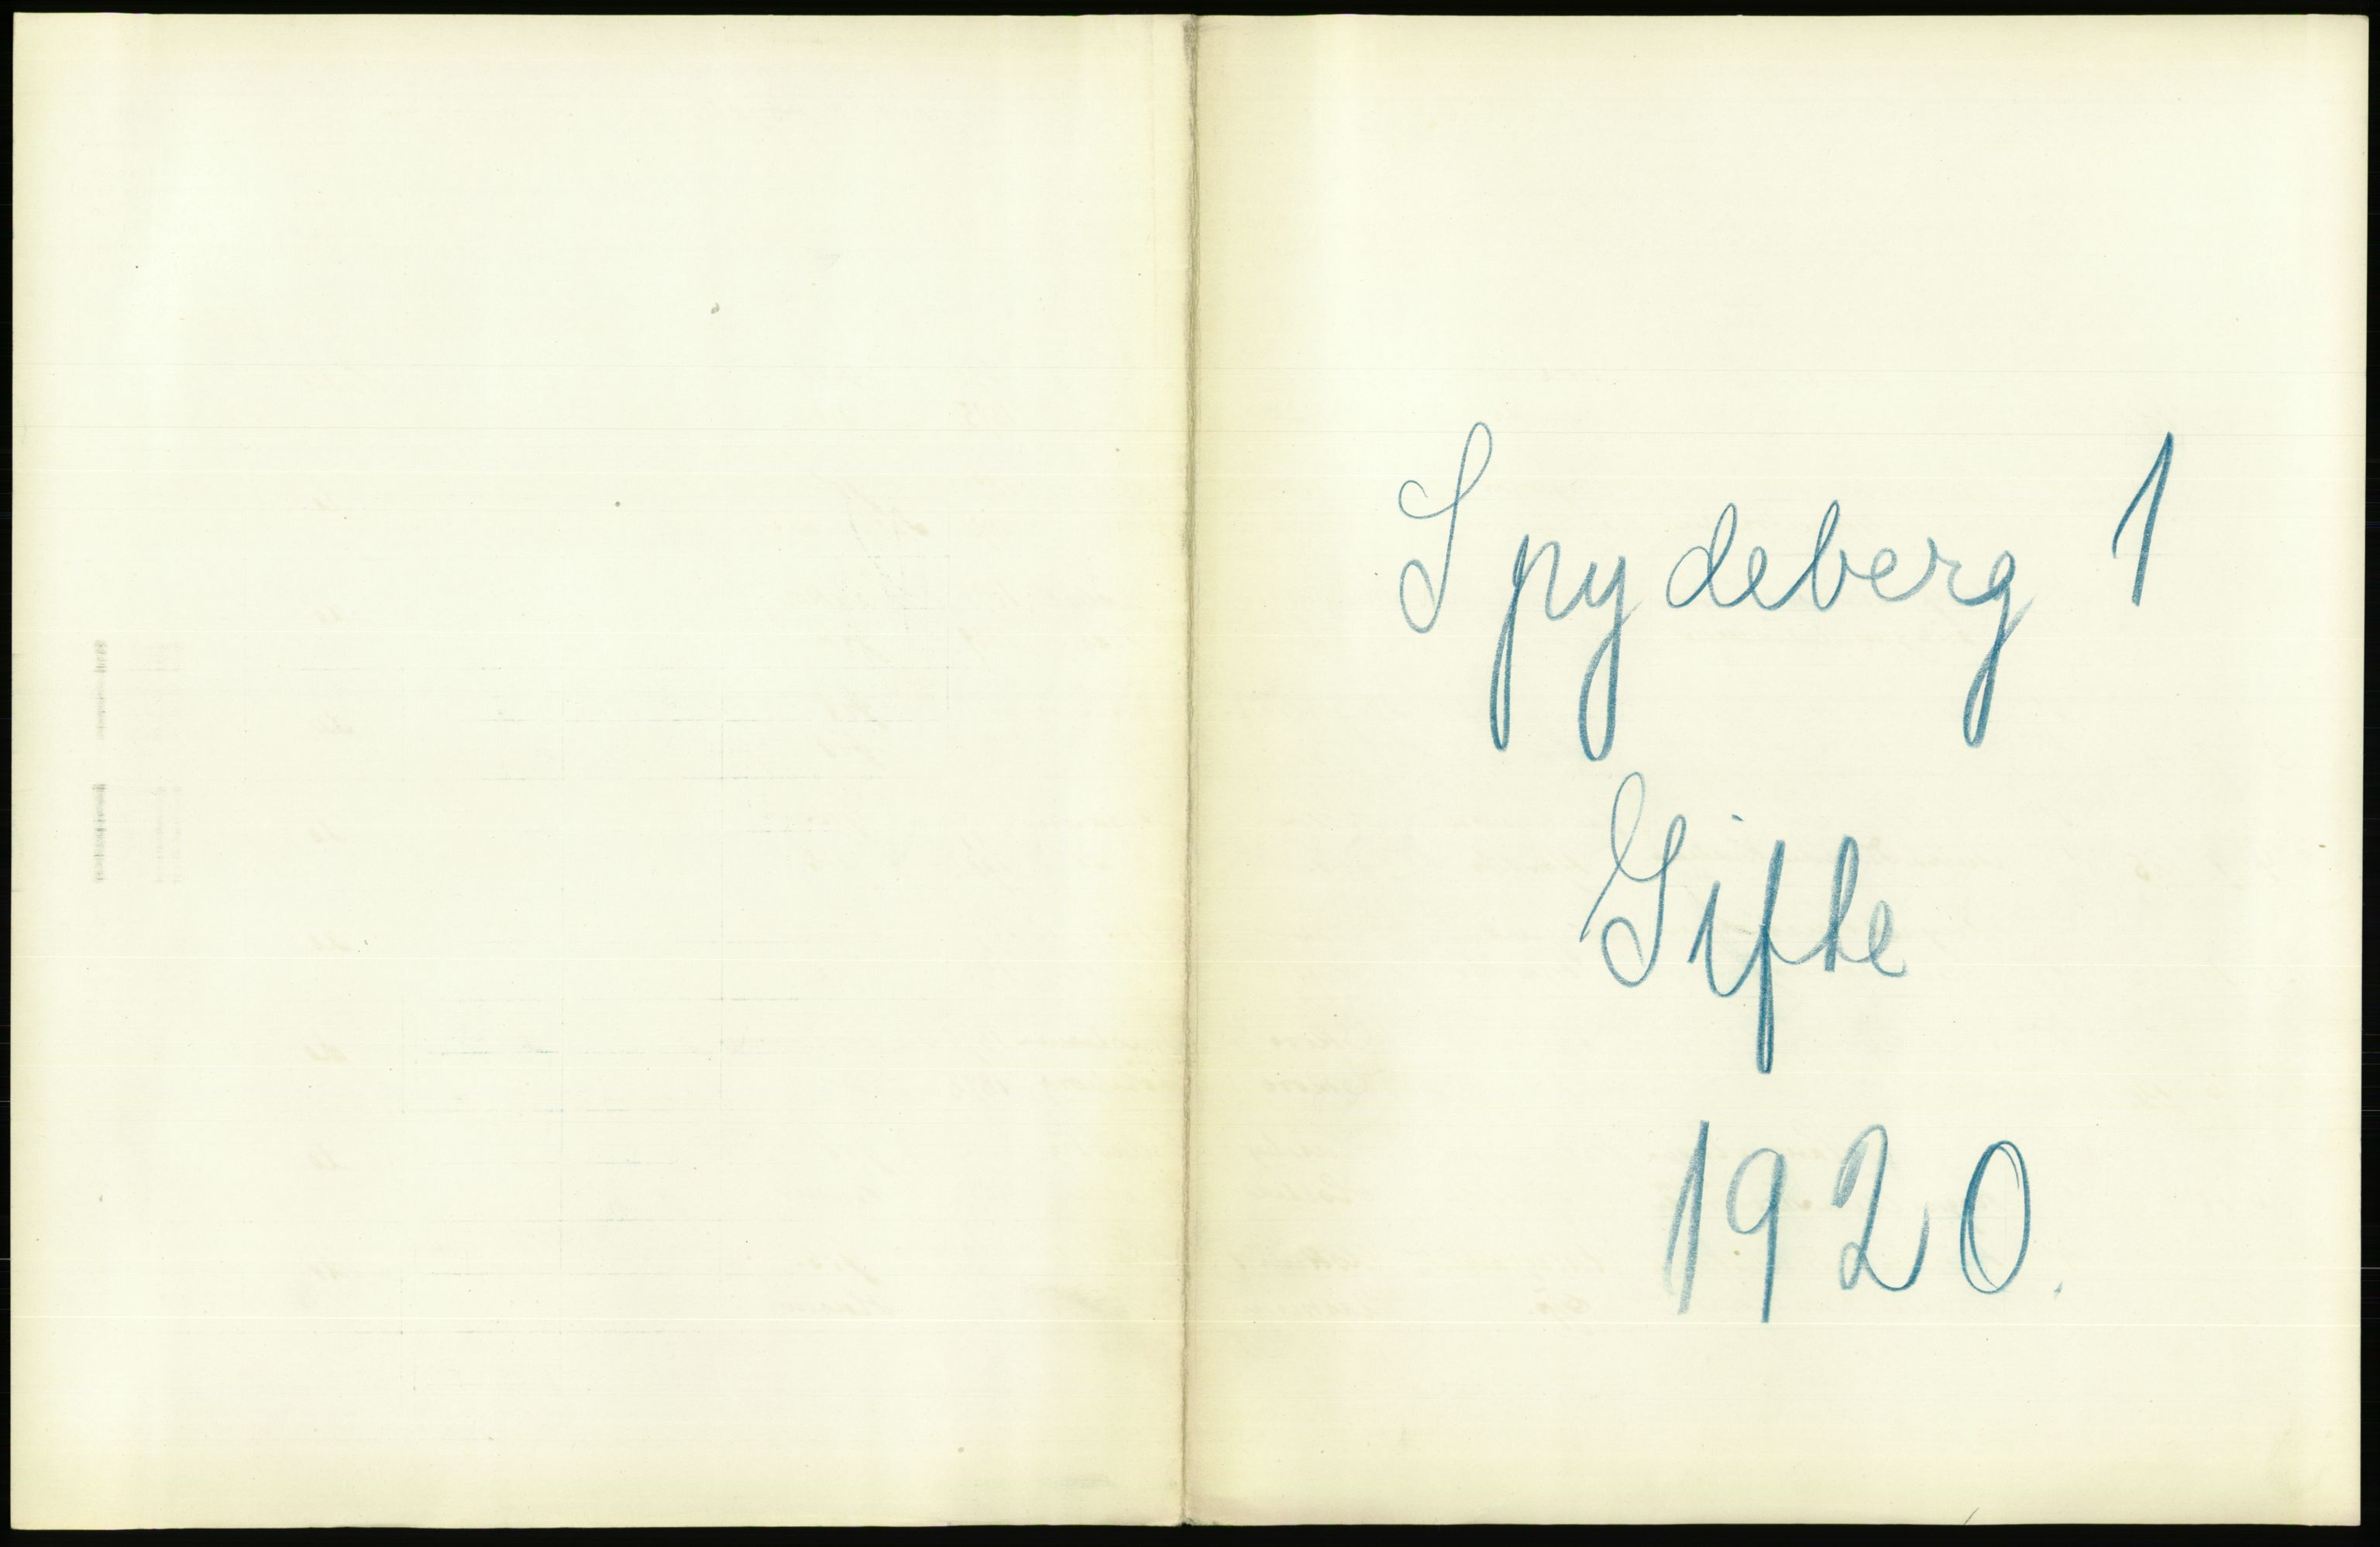 Spydeberg 1
Gifte
1920.